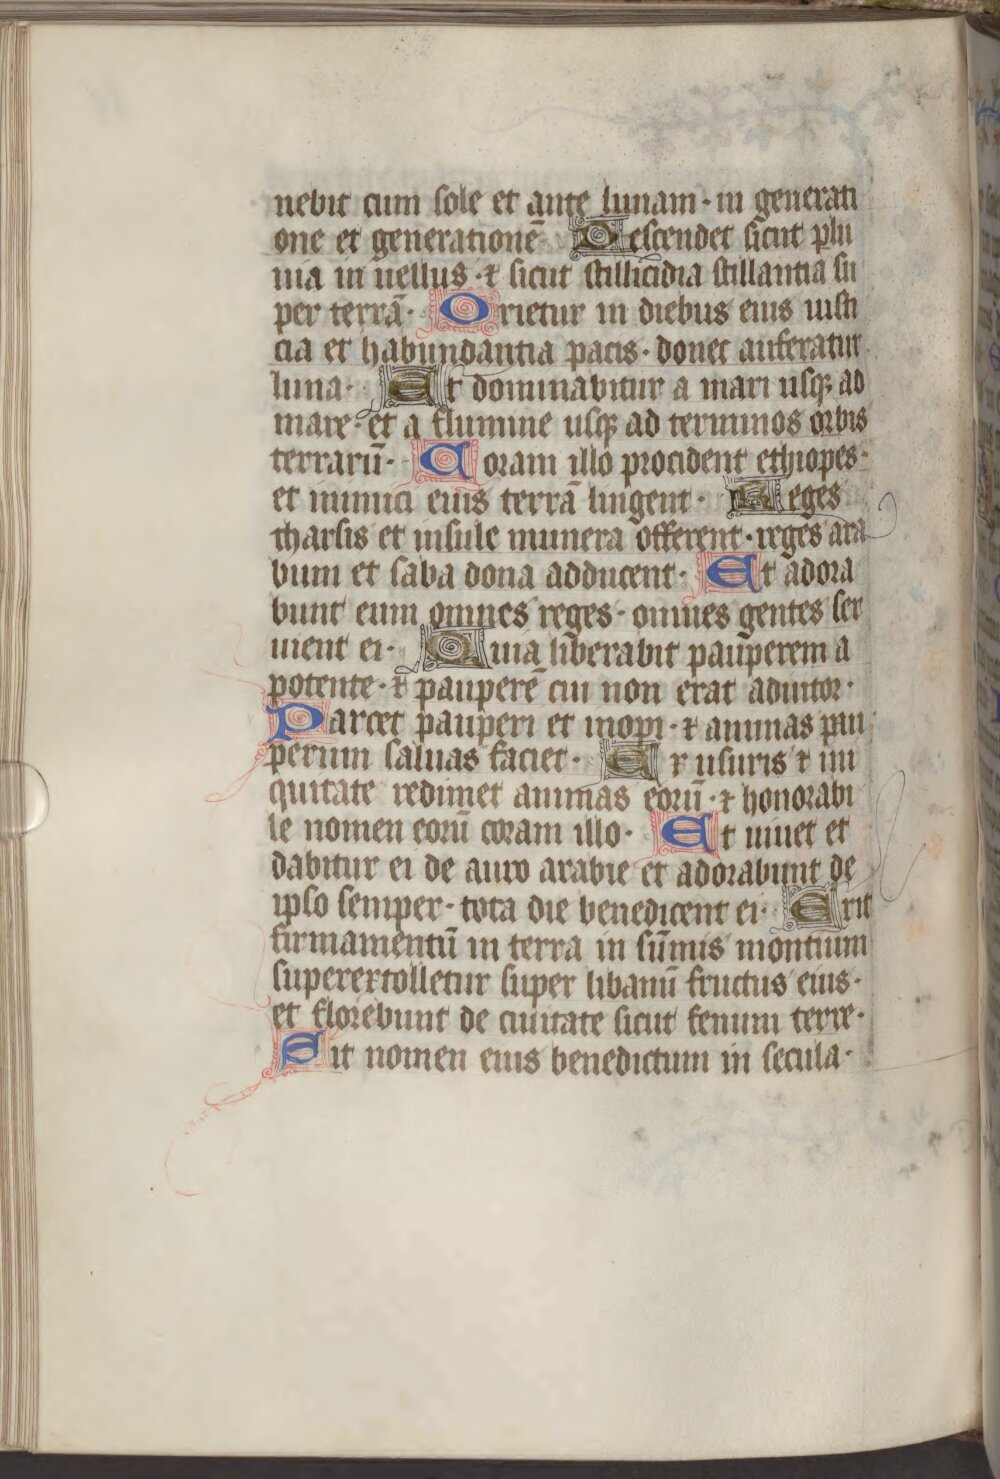 nebit cum sole et ante lunam · in generati
one et generationē Descendet sicut plu
uia in uellus · ⁊ sicut stillicidia stillantia su
per terrā · Orietur in diebus eius iusti
cia et habundantia pacis · donec auferatur
luna · Et dominabitur a mari usqꝫ ad
mare · et a flumine usqꝫ ad terminos orbis
terrarū · Coram illo procident ethiopes ·
et inimici eius terrā lingent · Reges
tharsis et insule munera offerent · reges ara
bum et saba dona adducent · Et adora
bunt eum omnes reges · omnes gentes ser
uient ei · Quia liberabit pauperem a
potente · ⁊ pauperē cui non erat adiutor ·
Parcet pauperi et inopi · ⁊ animas pau
perum saluas faciet · Ex usuris ⁊ ini
quitate redimet animas eorū · ⁊ honorabi
le nomen eorū coram illo · Et uiuet et
dabitur ei de auro arabie et adorabunt de
ipso semper · tota die benedicent ei · Erit
firmamentū in terra in sūmis montium
superextolletur super libanū fructus eius ·
et florebunt de ciuitate sicut fenum terre ·
Sit nomen eius benedictum in secula ·